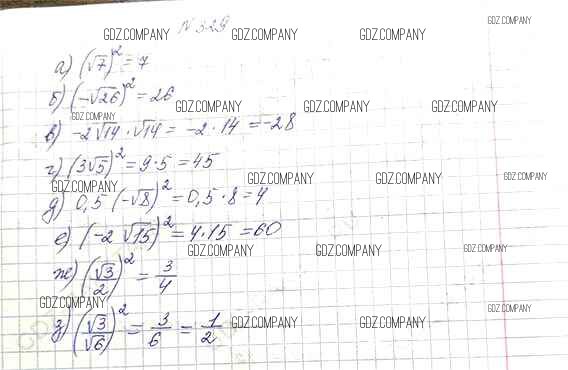 GDZ.COMPANY
№329 GDZ.COMPANY GDZ.COMPANY GDZ.COMPANY
а) (√7)² = 7
б) (-√26)² = 26
GDZ.COMPANY GDZ.COMPANY GDZ.COMPANY GDZ.COMPANY
в) -2√14 · √14 = -2 · 14 = -28
г) (3√5)² = 9·5 = 45
GDZ.COMPANY GDZ.COMPANY GDZ.COMPANY GDZ.COMPANY
д) 0,5 (-√8)² = 0,5 · 8 = 4
е) (-2 √15)² = 4·15 = 60
GDZ.COMPANY GDZ.COMPANY GDZ.COMPANY
ж) (√3/2)² = 3/4
GDZ.COMPANY GDZ.COMPANY
з) (√3/√6)² = 3/6 = 1/2
GDZ.COMPANY GDZ.COMPANY